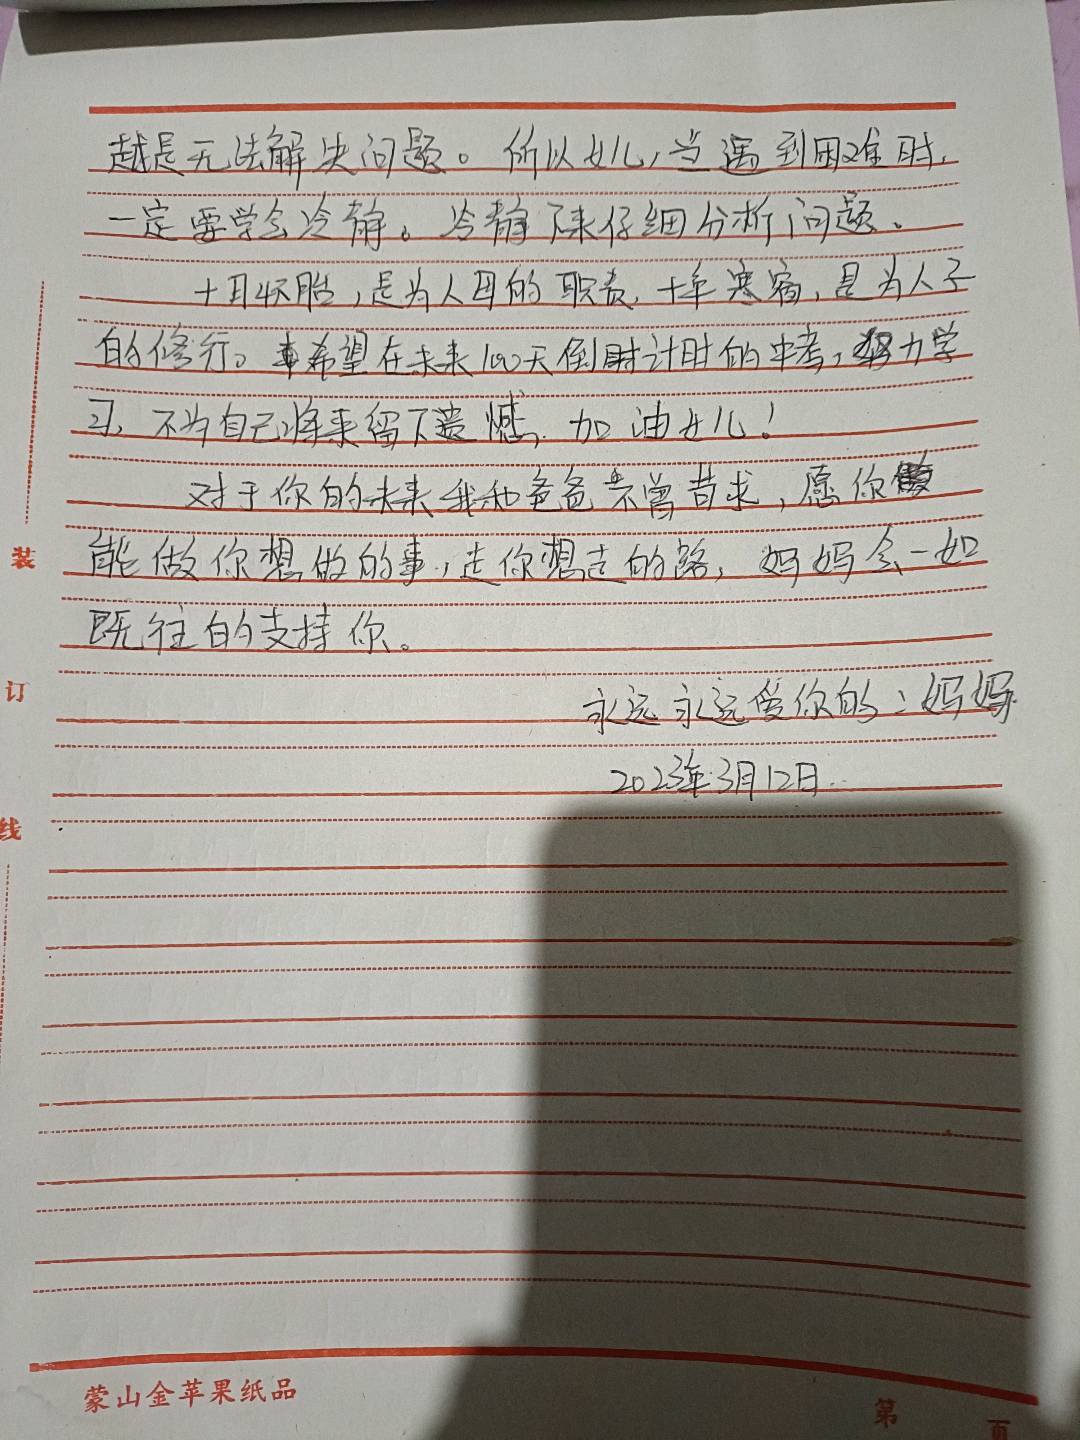 越是无法解决问题。所以女儿,当遇到困难时,
一定要学会冷静。冷静下来仔细分析问题。
十月怀胎,是为人母的职责,十年寒窗,是为人子
的修行。希望在未来100天倒计时的中考,努力学
习,不为自己将来留下遗憾,加油女儿!
对于你的未来我和爸爸不曾苛求,愿你
能做你想做的事,走你想走的路,妈妈会一如
既往的支持你。
永远永远爱你的:妈妈
2023年3月12日
装
订
线
蒙山金苹果纸品
第 页